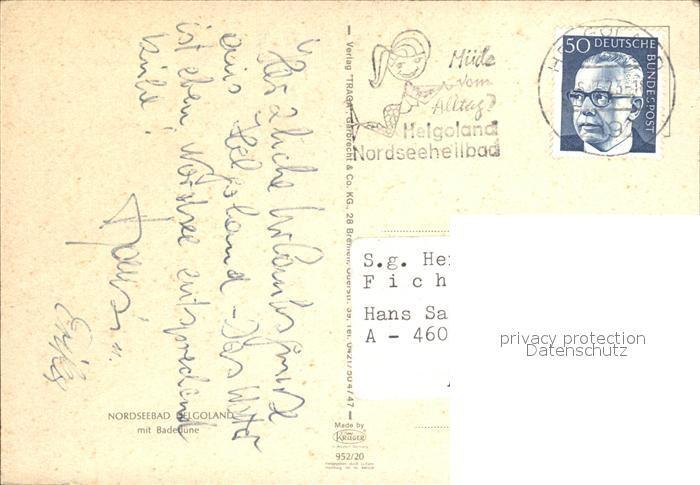 Herzliche Urlaubsgrüsse
aus Helgoland - Das Wetter
ist eben, Nordsee entsprechend
kühl!
NORDSEEBAD HELGOLAND
mit Badedüne
Verlag "TRAGA", Garbrecht & Co. KG., 28 Bremen,
Made by
KRÜGER
952/20
Müde
vom
Alltag?
Helgoland
Nordseeheilbad
50 DEUTSCHE
BUNDESPOST
S.g. He
Fich
Hans Sa
A - 460
privacy protection
Datenschutz